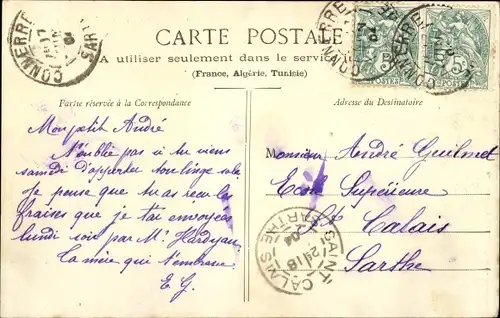 CARTE POSTALE
A utiliser seulement dans le service
(France, Algérie, Tunisie)
Partie réservée à la Correspondance
Adresse du Destinataire
Mon petit André
N'oublie pas si tu viens
samedi d'apporter ton linge sale
Je pense que tu as reçu les
fraises que je t'ai envoyées
lundi soir par Mr Hardyau
La mère qui t'embrasse
E G.
Monsieur André Guilmet
Ecole Supérieure
St Calais
Sarthe
CONNERRE
SARTHE
04
CONNERRE
CONNERRE
5c
POSTES
SAINT CALAIS
SARTHE
04